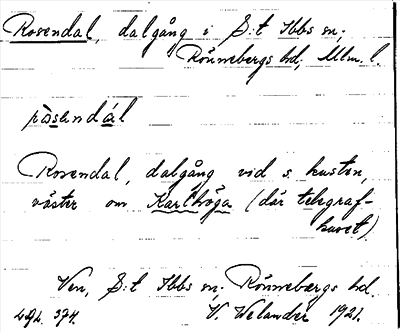 Rosendal, dalgång i S:t Ibbs sn,
Rönnebergs hd, Mlm. l.
Rosendal, dalgång vid s. kusten,
väster om Karlhöga (där telegraf-
huset)
Ven, S:t Ibbs sn, Rönnebergs hd.
374. V. Welander 1921.